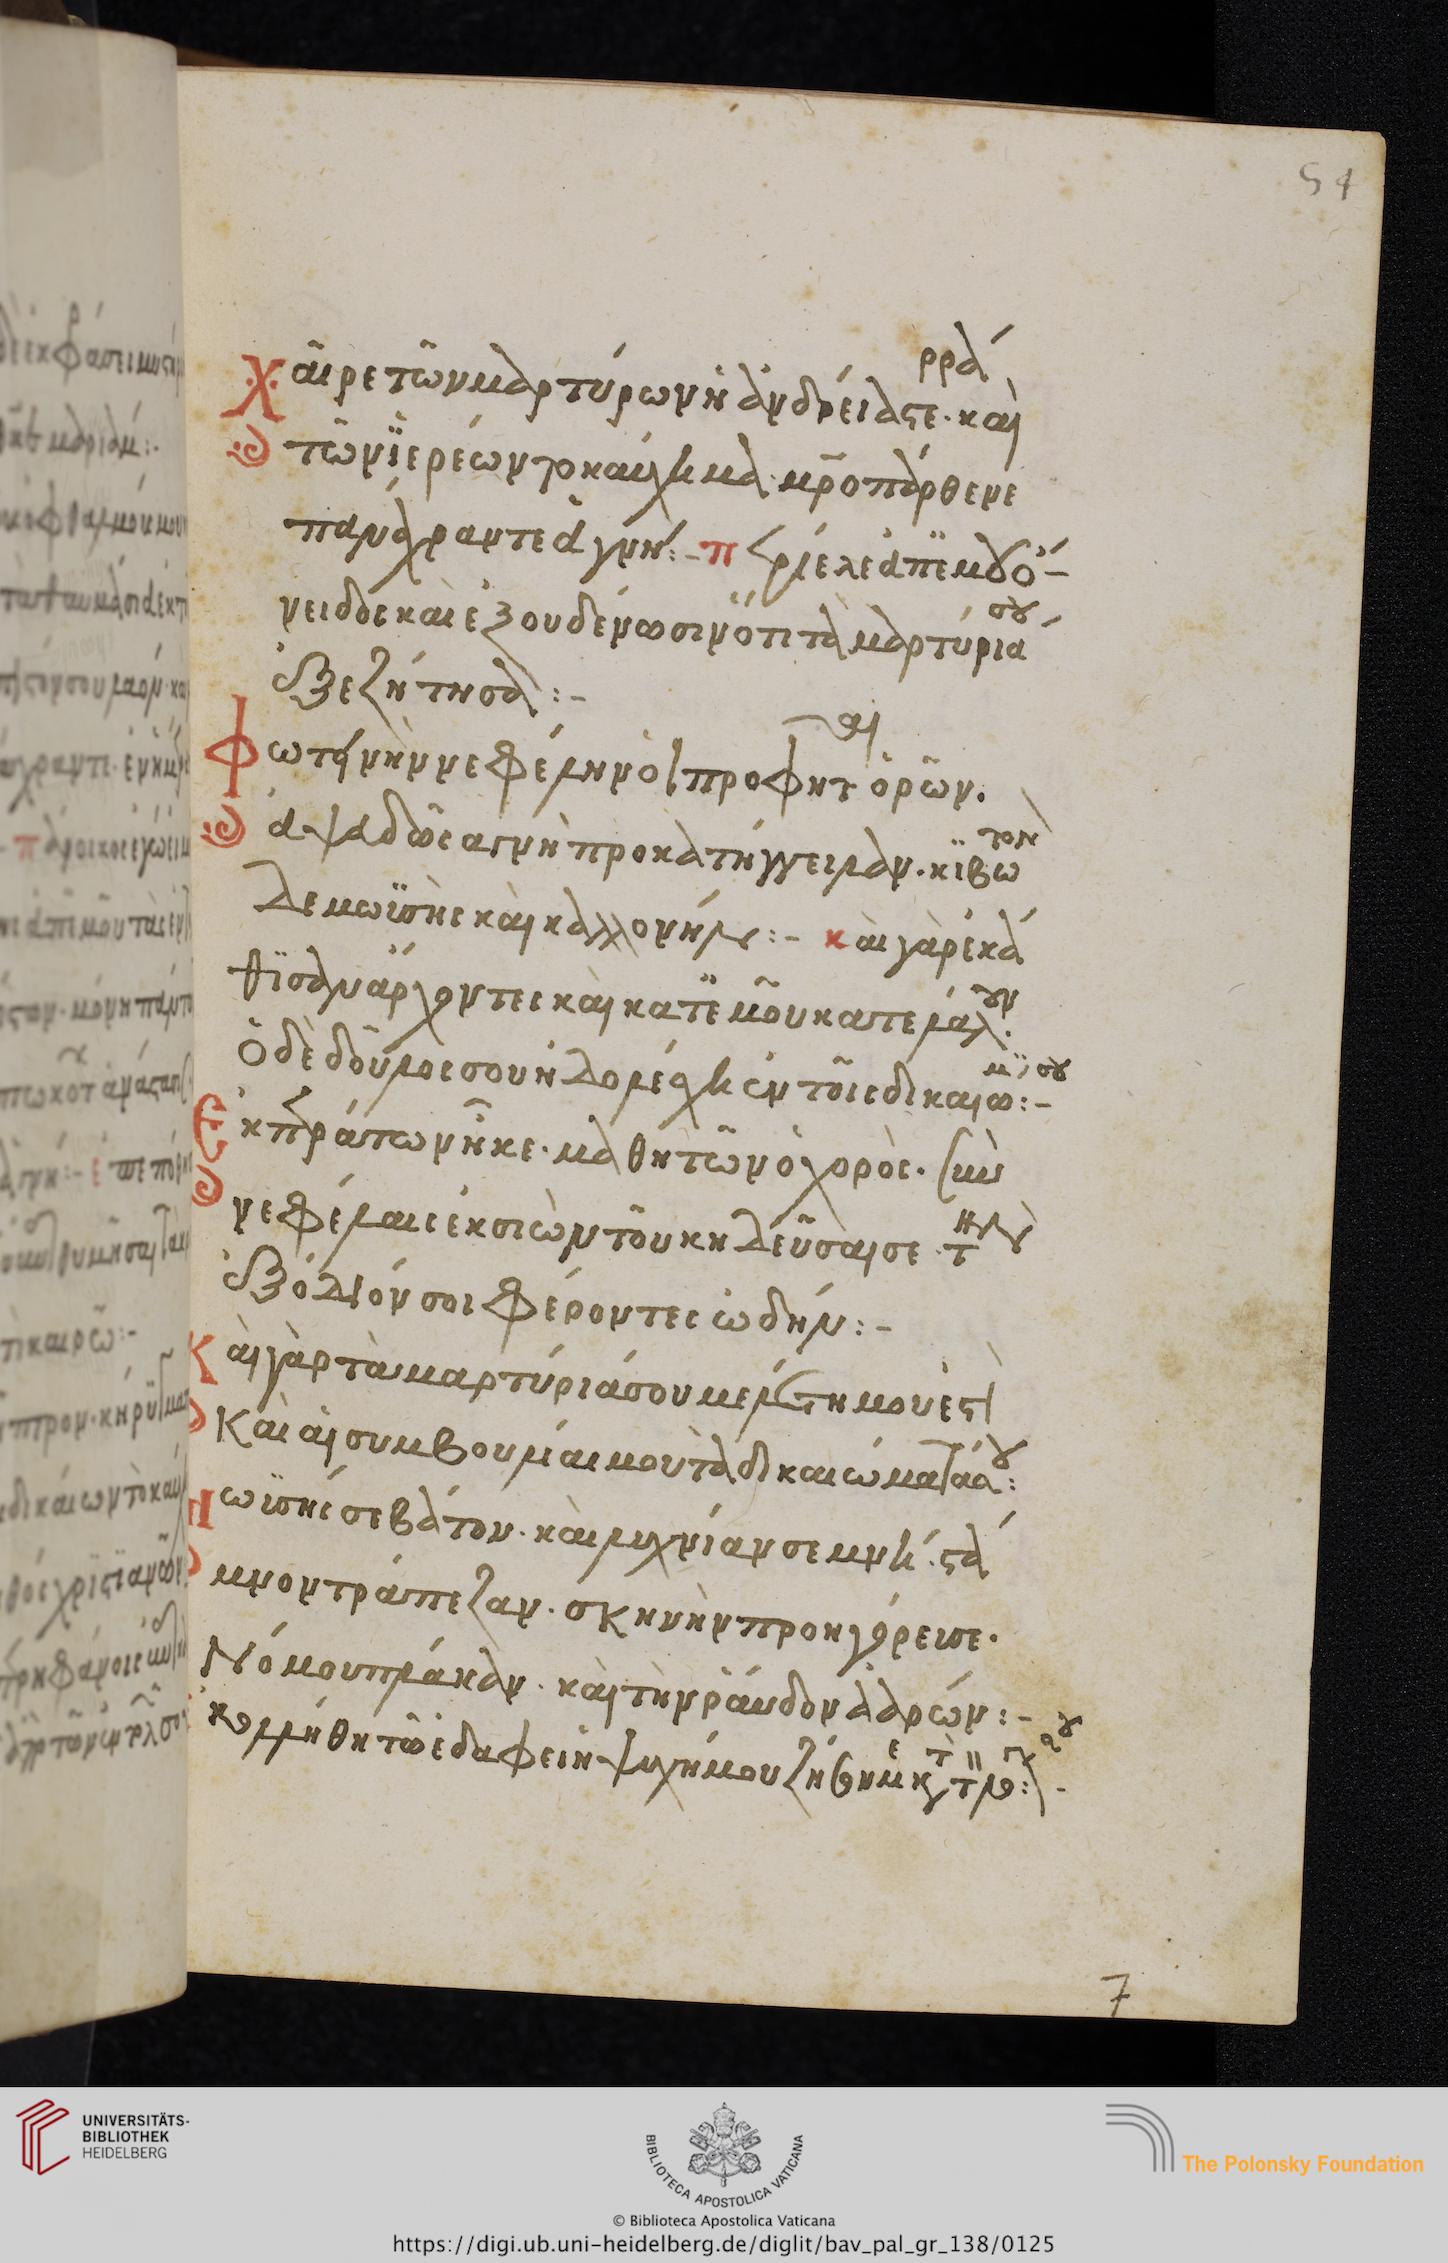 54
Χαῖρε τῶν μαρτύρων ἡ ἀνδρεία στερρά· καὶ
τῶν ἱερέων τὸ καύχημα· μρ̄οπάρθενε
πανάχραντε ἁγνή:- περίελε ἀπ' ἐμοῦ ὄ-
νειδος καὶ ἐξουδένωσιν ὅτι τὰ μαρτύριά σου
ἐξεζήτησα:-
Φωτεινὴν νεφέλην οἱ προφῆται ὁρῶν.
ἅψαδος ἁγνὴ προκατήγγειλαν. κιβωτὸν
δε μωϋσῆς καὶ καλλονήν:- καὶ γὰρ ἐκά
θισαν ἄρχοντες καὶ κατ' ἐμοῦ κατελάλουν.
ὁ δὲ δοῦλος σου ἠδολέσχη ἐν τοῖς δικαιώμασί σου:-
Ἐκ περάτων ἧκε· μαθητῶν ὁ χορός. σὺν
νεφέλαις ἐκ σιὼν τοῦ κηδεῦσαί σε. τὴν
ἐξόδιόν σοι φέροντες ὠδήν:-
Καὶ γὰρ τὰ μαρτύριά σου μελέτη μου ἐστι
Καὶ αἱ συμβουλίαι μου τὰ δικαιώματά σου:
Μωϋσῆς σε βάτον. καὶ λυχνίαν σεμνή. στά
μνον τράπεζαν. σκηνὴν προηγόρευσε.
Νόμου πλάκαν. καὶ τὴν ῥάβδον ἀαρών:-
ἐκολλήθη τῷ ἐδάφει ἡ ψυχή μου ζῆσόν με κατὰ τὸν λόγον σου:-
7
UNIVERSITÄTS-
BIBLIOTHEK
HEIDELBERG
BIBLIOTECA APOSTOLICA VATICANA
The Polonsky Foundation
© Biblioteca Apostolica Vaticana
https://digi.ub.uni-heidelberg.de/diglit/bav_pal_gr_138/0125